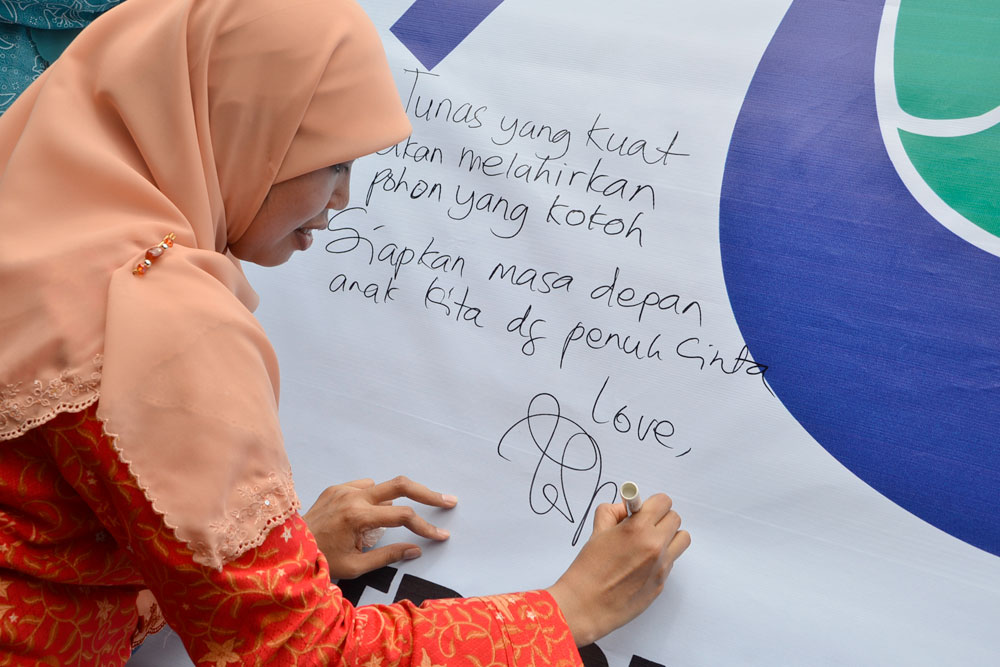 Tunas yang kuat
akan melahirkan
pohon yang kokoh
Siapkan masa depan
anak kita dg penuh cinta
Love,